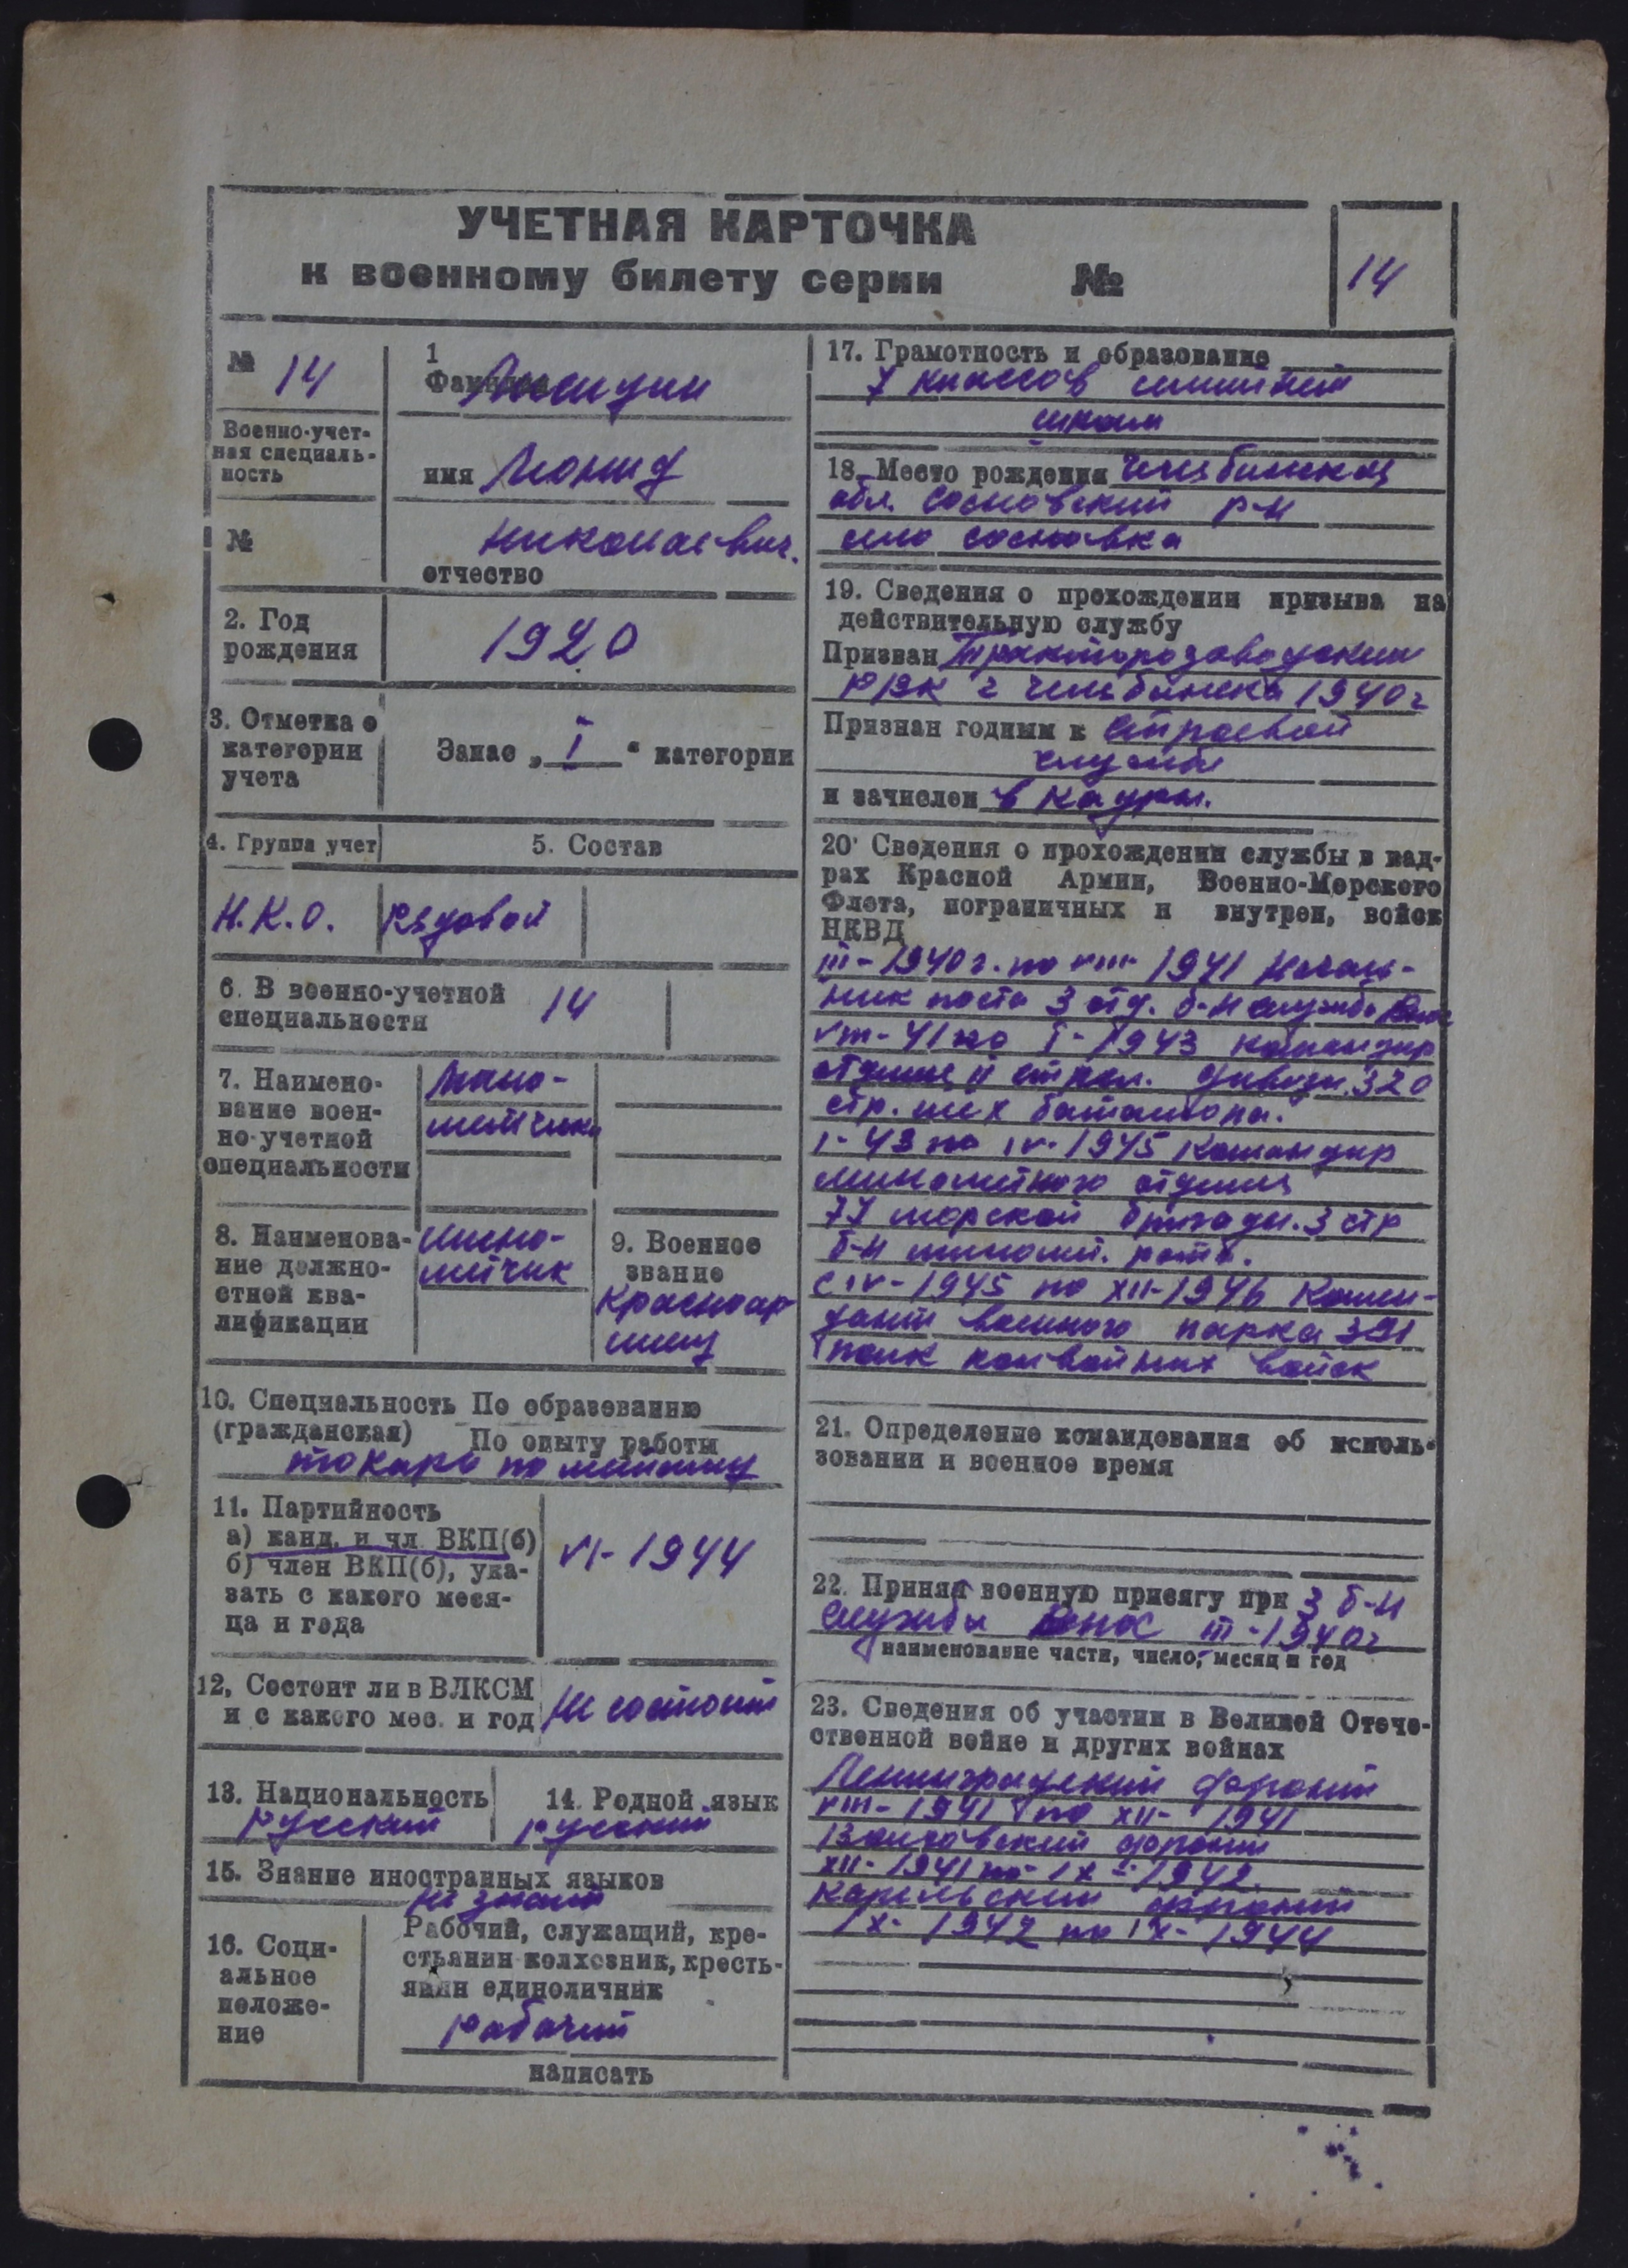 УЧЕТНАЯ КАРТОЧКА
к военному билету серии №
14
№ 14
Военно-учет-
ная специаль-
ность
№
1
имя Леонид
Николаевич.
отчество
2. Год
рождения
1920
3. Отметка о
категории
учета
Запас „ I “ категории
4. Группа учет
5. Состав
Н.К.О.
Рядовой
6. В военно-учетной
специальности
14
7. Наимено-
вание воен-
но-учетной
специальности
8. Наименова-
ние должно-
стной ква-
лификации
мино-
мётчик
9. Военное
звание
Красноар
меец
10. Специальность По образованию
(гражданская)
По опыту работы
токарь по металлу
11. Партийность
а) канд. и чл. ВКП(б)
б) член ВКП(б), ука-
зать с какого меся-
ца и года
VI-1944
12, Состоит ли в ВЛКСМ
и с какого мес. и год
не состоит
13. Национальность
русский
14. Родной язык
русский
15. Знание иностранных языков
не знает
16. Соци-
альное
положе-
ние
Рабочий, служащий, кре-
стьянин-колхозник, кресть-
янин единоличник
рабочий
написать
17. Грамотность и образование
7 классов
школы
18. Место рождения Челябинская
обл. Сосновский р-н
село Сосновка
19. Сведения о прохождении призыва на
действительную службу
Призван Тракторозаводским
РВК г Челябинска 1940г
Признан годным к строевой
службе
и зачислен в кадры.
20. Сведения о прохождении службы в кад-
рах Красной Армии, Военно-Морского
Флота, пограничных и внутрен, войск
НКВД
III-1940г. по VIII-1941 Началь-
ник поста 3 отд. б-н службы ВНОС
VIII-41 по I-1943 командир
отделе 11 стрел. дивизи. 320
стр. батальона.
I-43 по IV-1945 командир
минометного отделе
77 морской бригады. 3 стр
б-н миномет. рота.
с IV-1945 по XII-1946 Комен-
дант военного парка 391
полк конвойных войск
21. Определение командования об исполь-
зовании и военное время
22. Принял военную присягу при 3 б-н
службы ВНОС III-1940г
наименование части, число, месяц и год
23. Сведения об участии в Великой Отече-
ственной войне и других войнах
Ленинградский фронт
VIII-1941 по XII-1941
Волховский фронт
XII-1941 по IX-1942.
Карельский фронт
IX-1942 по IX-1944